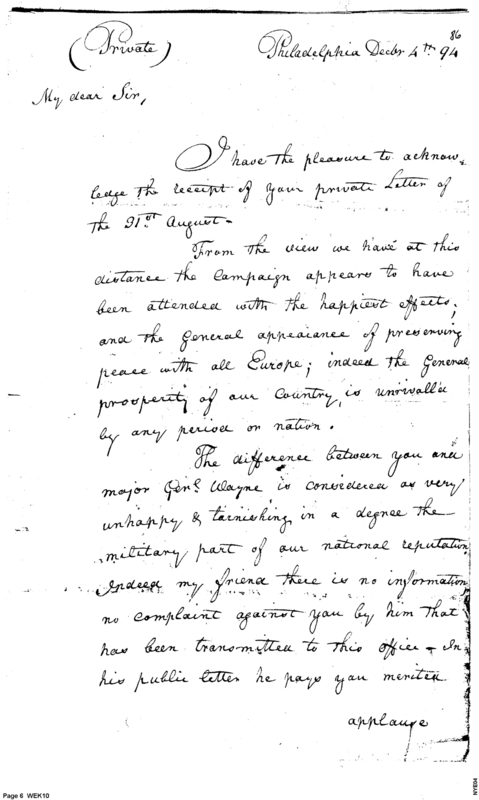 86
(Private)
Philadelphia Decbr 4th 94
My dear Sir,
I have the pleasure to acknow-
ledge the receipt of your private Letter of
the 31st August -
From the view we have at this
distance the Campaign appears to have
been attended with the happiest effects;
and the General appearance of preserving
peace with all Europe; indeed the General
prosperity of our Country, is unrivall'd
by any period or nation.
The difference between you and
major Genl Wayne is considered as very
unhappy & tarnishing in a degree the
military part of our national reputation
Indeed my friend there is no information,
no complaint against you by him that
has been transmitted to this office - In
his public letter he pays you merited
applause
Page 6 WEK10
NYE04